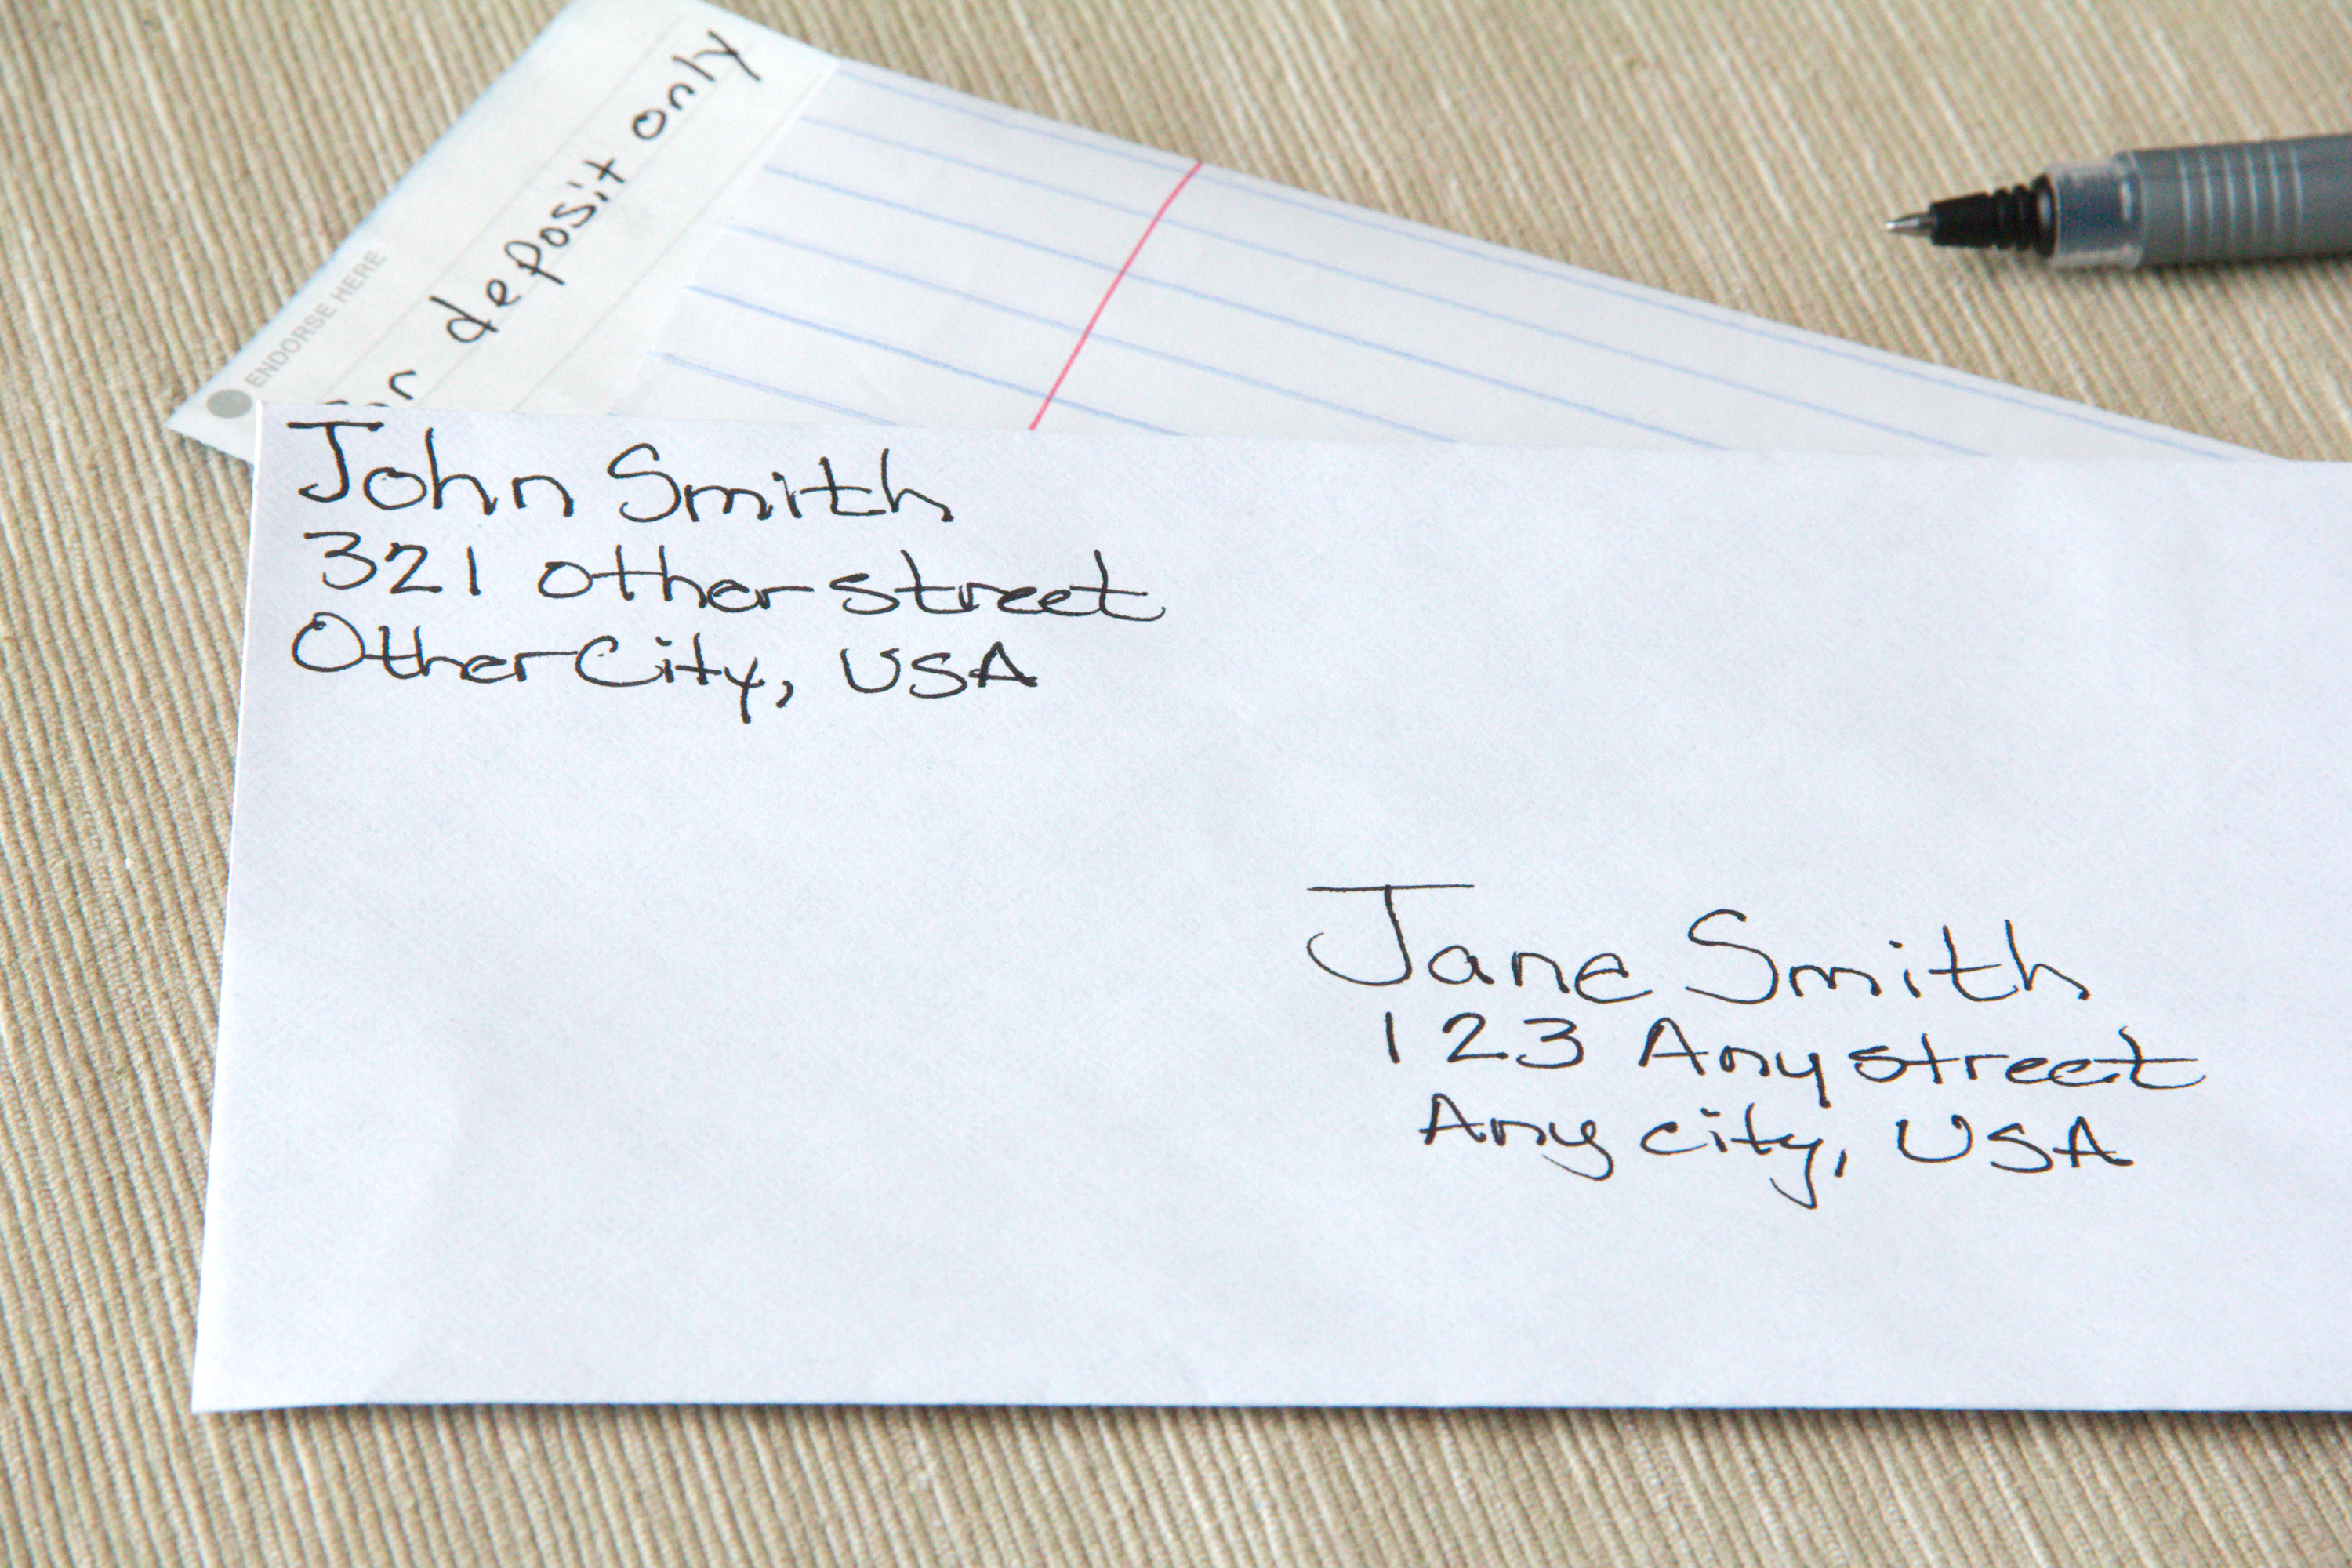 ENDORSE HERE
For deposit only
John Smith
321 other street
Other City, USA
Jane Smith
123 Any street
Any city, USA